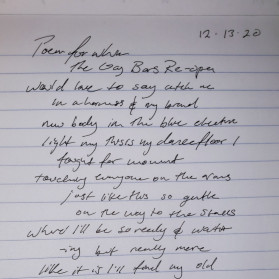 12-13-20
Poem for when
the Gay Bars Re-open
would love to say catch me
in a harness & my brand
new body in the blue electric
light my this is my dancefloor I
fought for moment
touching everyone on the arms
just like this so gentle
on the way to the stalls
where I'll be so ready & wait
-ing but really more
like it is I'll find my old